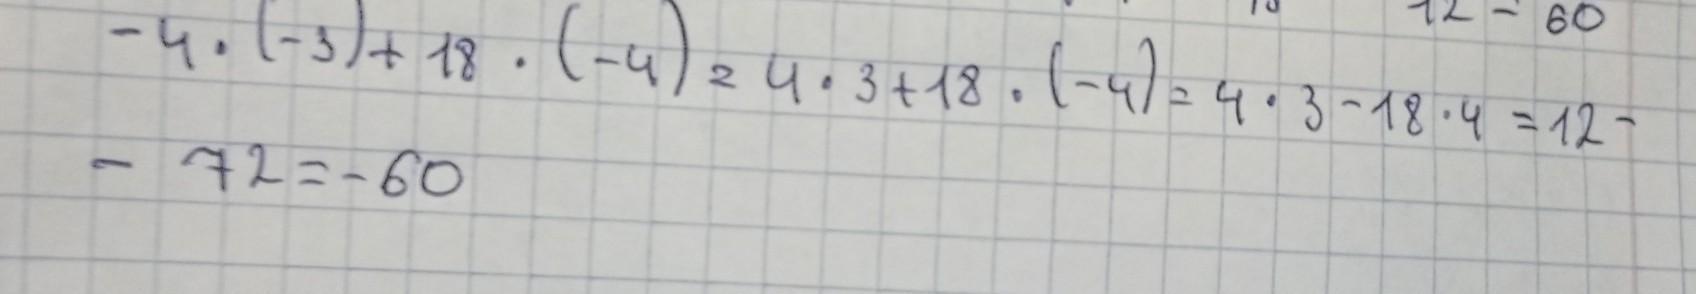 12 - 60
-4 · (-3) + 18 · (-4) = 4 · 3 + 18 · (-4) = 4 · 3 - 18 · 4 = 12 -
- 72 = -60